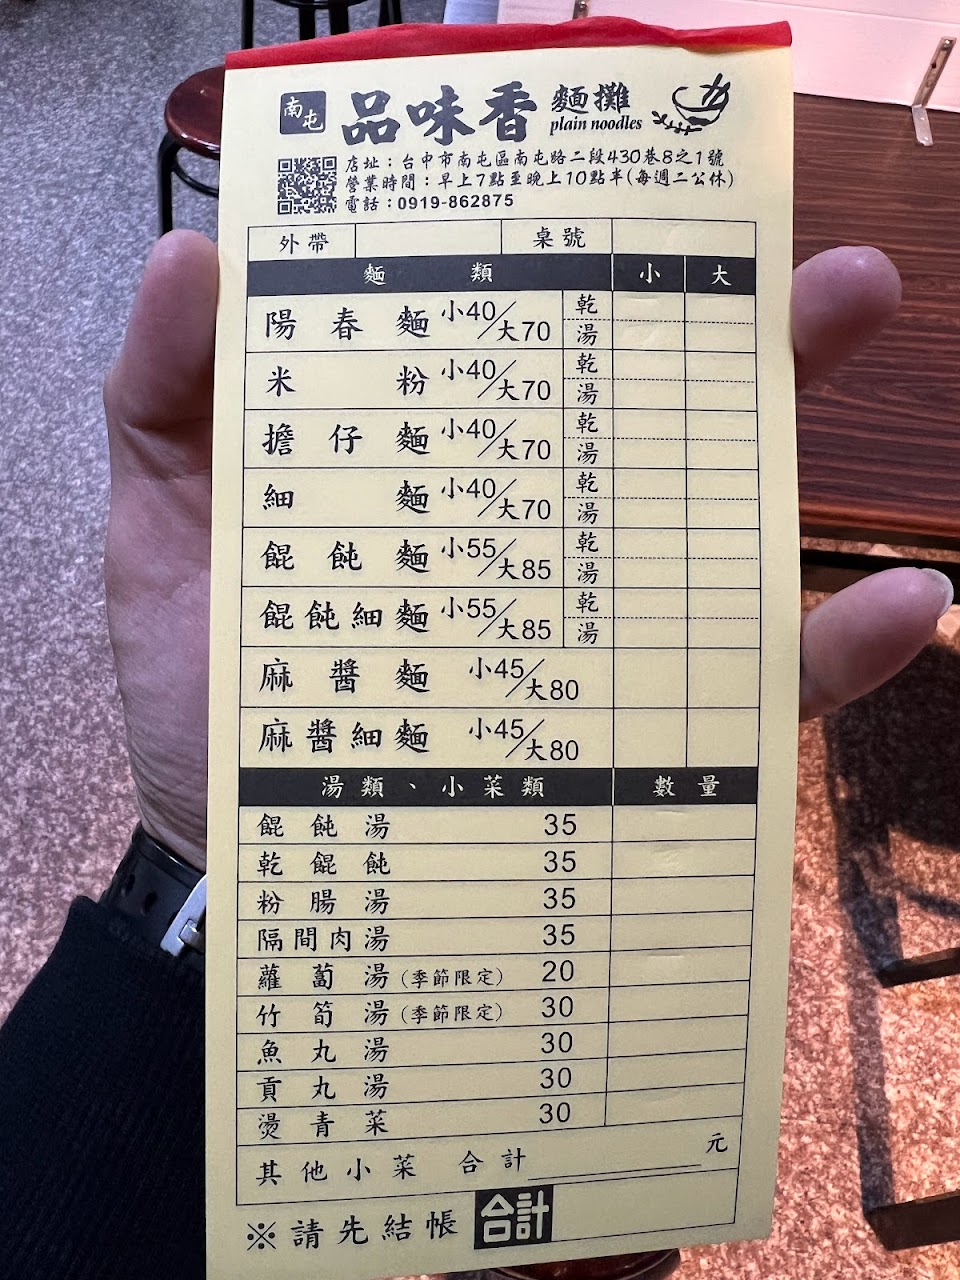 南屯 品味香 麵攤
plain noodles
店址：台中市南屯區南屯路二段430巷8之1號
營業時間：早上7點至晚上10點半(每週二公休)
電話：0919-862875
外帶 桌號
麵類 小 大
陽春麵 小40/大70 乾 湯
米粉 小40/大70 乾 湯
擔仔麵 小40/大70 乾 湯
細麵 小40/大70 乾 湯
餛飩麵 小55/大85 乾 湯
餛飩細麵 小55/大85 乾 湯
麻醬麵 小45/大80
麻醬細麵 小45/大80
湯類、小菜類 數量
餛飩湯 35
乾餛飩 35
粉腸湯 35
隔間肉湯 35
蘿蔔湯(季節限定) 20
竹筍湯(季節限定) 30
魚丸湯 30
貢丸湯 30
燙青菜 30
其他小菜 合計 元
※請先結帳 合計